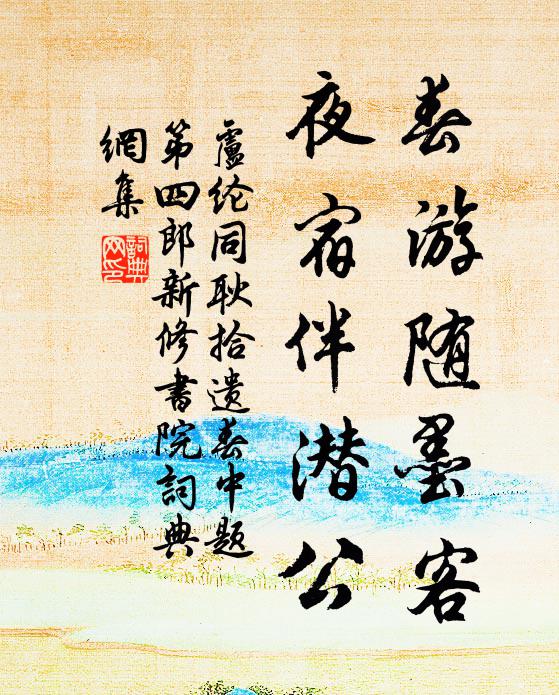 春游随墨客
夜宿伴潜公
盧纶同耿拾遗春中题
第四郎新修書院詞典
網集
詞典
网印